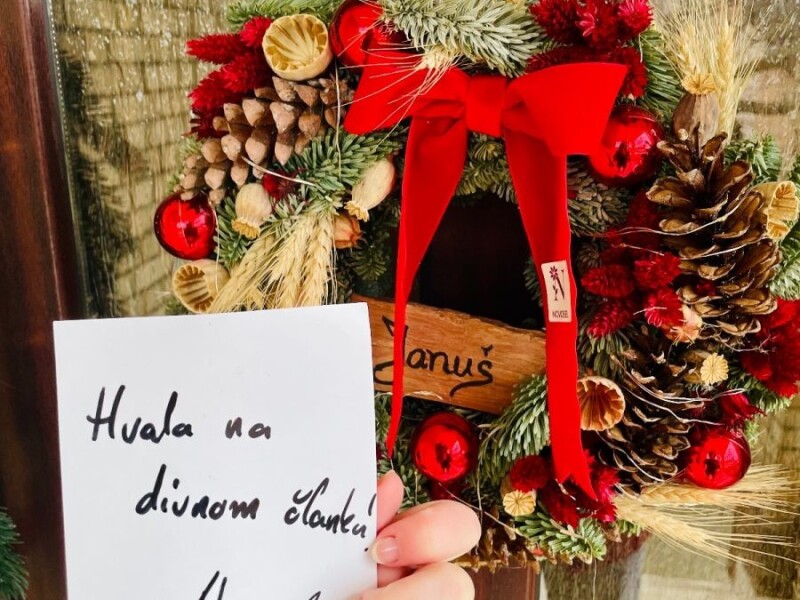 Januš
NOVOSEL
Hvala na
divnom članku!